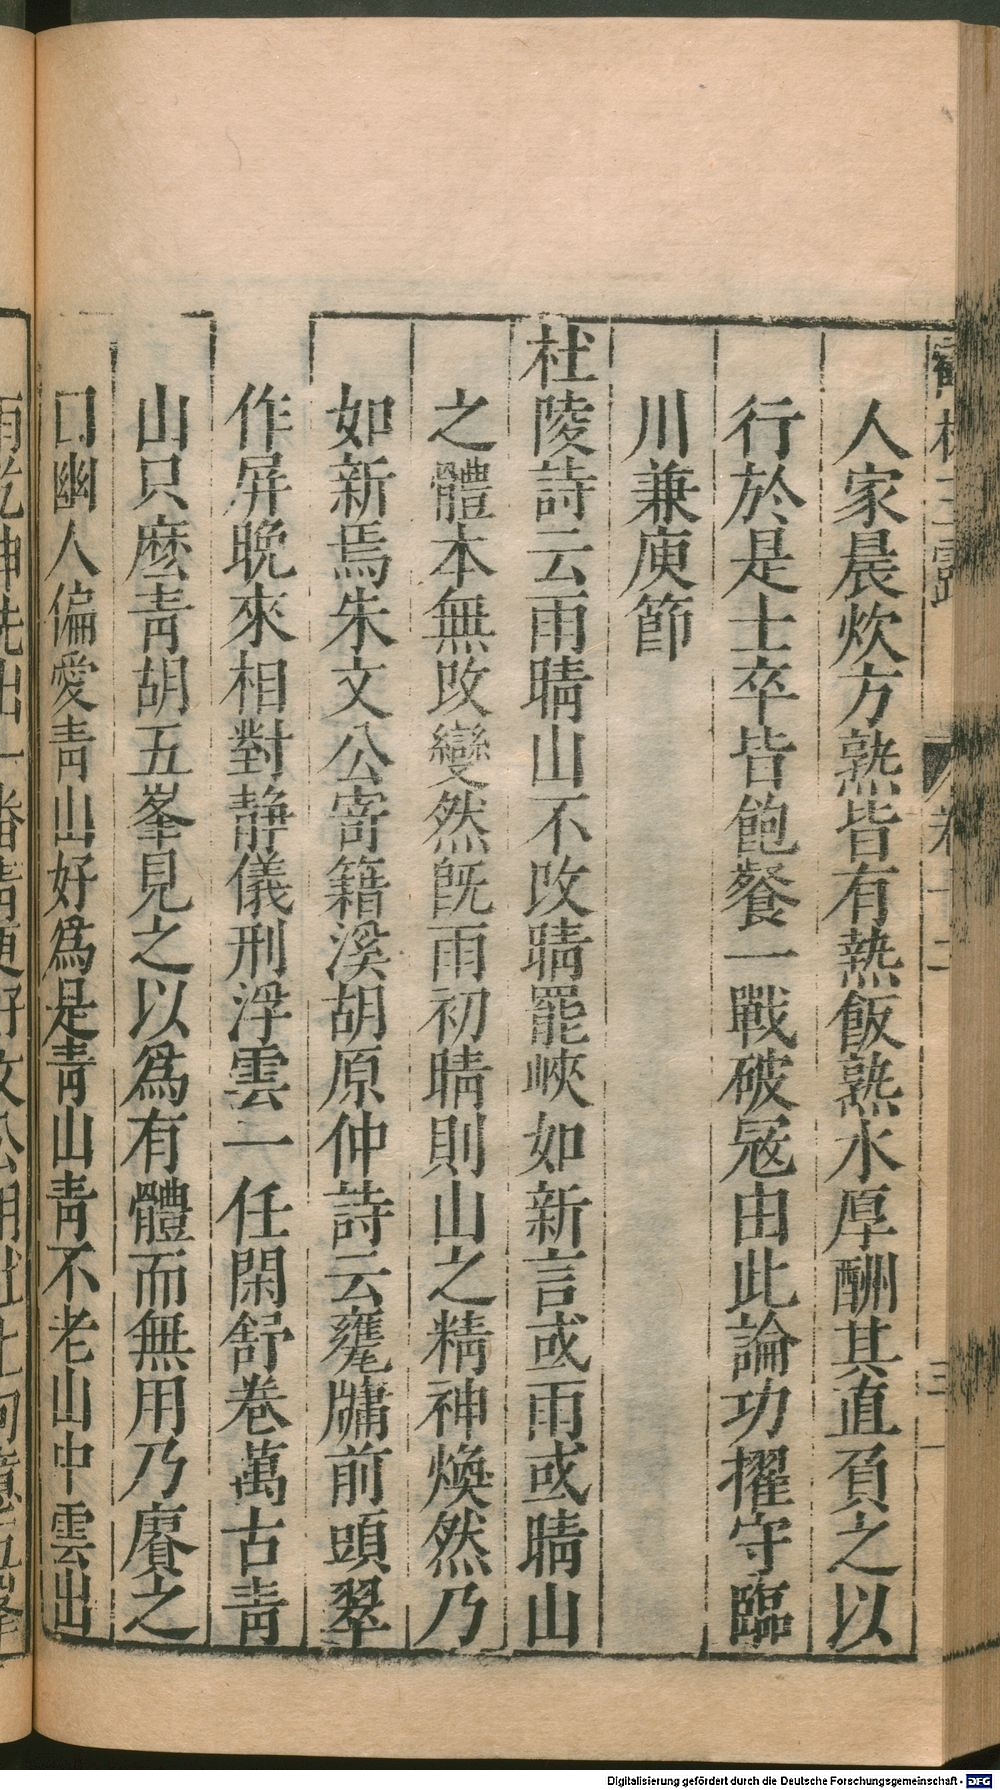 人家晨炊方熟皆有熱飯熟水厚酬其直負之以
行於是士卒皆飽餐一戰破冦由此論功擢守臨
川兼庾節
杜陵詩云雨晴山不改晴罷峽如新言或雨或晴山
之體本無改變然旣雨初晴則山之精神煥然乃
如新焉朱文公寄籍溪胡原仲詩云甕牖前頭翠
作屏晚來相對靜儀刑浮雲一任閑舒卷萬古青
山只麽青胡五峯見之以爲有體而無用乃賡之
曰幽人偏愛青山好爲是青山青不老山中雲出
雨乾坤洗出一番青更好文公用
Digitalisierung gefördert durch die Deutsche Forschungsgemeinschaft - DFG